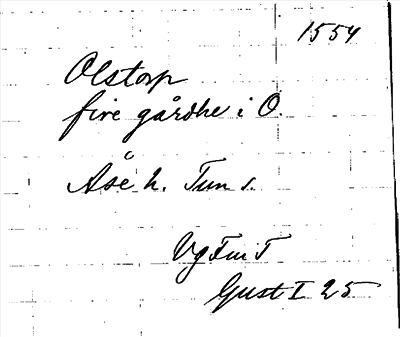 1554
Olstorp
fire gårdhe i O.
Åse h. Tun s.
Vg Fur T
Gust I 25